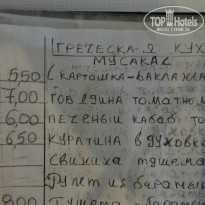 TOP HOTELS
ФОТО ТУРИСТА
ГРЕЧЕСКА-Я КУХ
МУСАКАС
550 (КАРТОШКА-БАКЛАЖА
7,00 ГОВЯДИНА ТОМАТНОМ
6,00 ПЕЧЁНЫЙ КАБАБ ТО
6,50 КУРАТИНА В ДУХОВКЕ
СВИНИНА ТУШЕМА
РУЛЕТ ИЗ БАРАНЬ